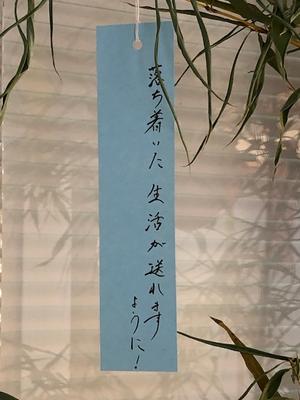 落ち着いた生活が送れます
ように！